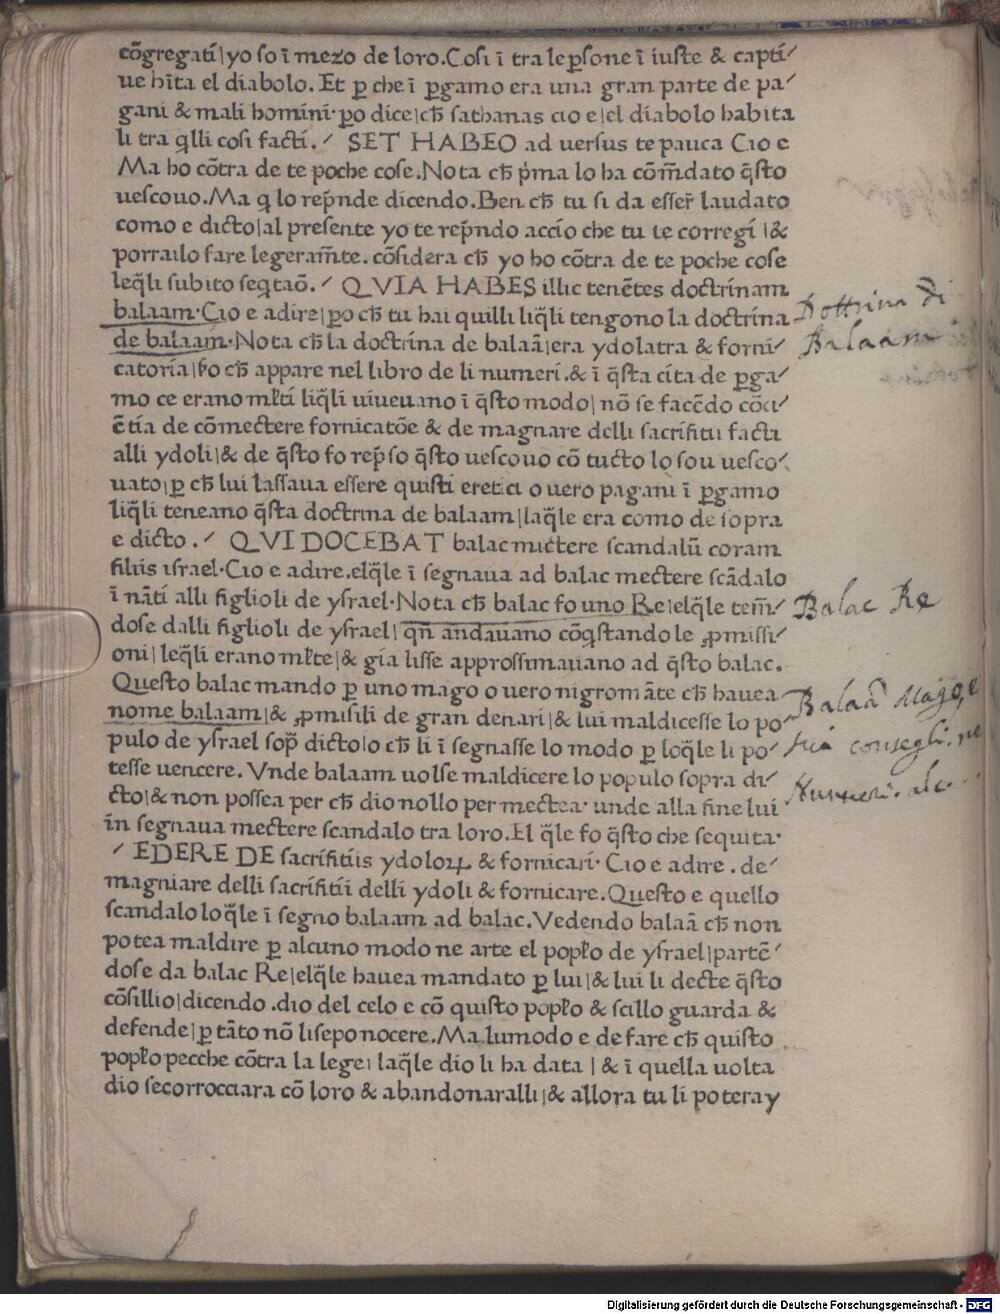 cõgregati|yo so ĩ mezo de loro.Cosi ĩ tra le ꝑsone ĩ iuste & capti⸍
ue hĩta el diabolo. Et ꝑ che ĩ ꝑgamo era una gran parte de pa⸍
gani & mali homini· ꝑo dice|ch̃ sathanas cio e|el diabolo habita
li tra q̃lli cosi facti. ⸍ SET HABEO ad uersus te pauca Cio e
Ma ho cõtra de te poche cose.Nota ch̃ p̃ma lo ha cõm̃dato q̃sto
uescouo.Ma q lo rep̃nde dicendo.Ben ch̃ tu si da esser̃ laudato
como e dicto|al presente yo te rep̃ndo accio che tu te corregi |&
porrailo fare legeram̃te. cõsidera ch̃ yo ho cõtra de te poche cose
leq̃li subito seq̃taõ. ⸍ QVIA HABES illic tenẽtes doctrinam
balaam·Cio e adire|ꝑo ch̃ tu hai quilli liq̃li tengono la doctrina
de balaam·Nota ch̃ la doctrina de balaã|era ydolatra & forni⸍
catoria|ꝑo ch̃ appare nel libro de li numeri.& ĩ q̃sta cita de ꝑga⸍
mo ce erano mł̃ti liq̃li uiueuano ĩ q̃sto modo| nõ se facẽdo cõci⸍
ẽtia de cõmectere fornicatõe & de magnare delli sacrifitii facti
alli ydoli|& de q̃sto fo rep̃so q̃sto uescouo cõ tucto lo sou uesco⸍
uato|ꝑ ch̃ lui lassaua essere quisti eretici o uero pagani ĩ ꝑgamo
liq̃li teneano q̃sta doctrina de balaam|laq̃le era como de sopra
e dicto . ⸍ QVI DOCEBAT balac mictere scandalũ coram
filiis israel·Cio e adire.elq̃le ĩ segnaua ad balac mectere scãdalo
ĩ nãti alli figlioli de ysrael·Nota ch̃ balac fo uno Re|elq̃le tem̃⸍
dose dalli figlioli de ysrael|qñ andauano cõq̃stando le ꝓmissi⸍
oni|leq̃li erano mł̃te|& gia lisse approssimauano ad q̃sto balac.
Questo balac mando ꝑ uno mago o uero nigromãte ch̃ hauea
nome balaam|& ꝓmisili de gran denari|& lui maldicesse lo po⸍
pulo de ysrael sop̃ dicto|o ch̃ li ĩ segnasse lo modo ꝑ loq̃le li po⸍
tesse uencere. Vnde balaam uolse maldicere lo populo sopra di⸍
cto|& non possea per ch̃ dio nollo permectea· unde alla fine lui
in segnaua mectere scandalo tra loro.El q̃le fo q̃sto che sequita·
⸍ EDERE DE sacrifitiis ydoloꝝ & fornicari· Cio e adire . de⸍
magniare delli sacrifitii delli ydoli & fornicare.Questo e quello
scandalo loq̃le ĩ segno balaam ad balac.Vedendo balaã ch̃ non
potea maldire ꝑ alcuno modo ne arte el popło de ysrael|partẽ⸍
dose da balac Re|elq̃le hauea mandato ꝑ lui|& lui li decte q̃sto
cõsillio|dicendo .dio del celo e cõ quisto popło & scillo guarda &
defende|ꝑ tãto nõ lisepo nocere.Ma lumodo e de fare ch̃ quisto
popło pecche cõtra la lege| laq̃le dio li ha data | & ĩ quella uolta
dio secorrocciara cõ loro & abandonaralli|& allora tu li poteray
Dottrina di
Balaam
Balac Re
Balaã Mago, e
sua consegli. ne
Numeri.
Digitalisierung gefördert durch die Deutsche Forschungsgemeinschaft - DFG